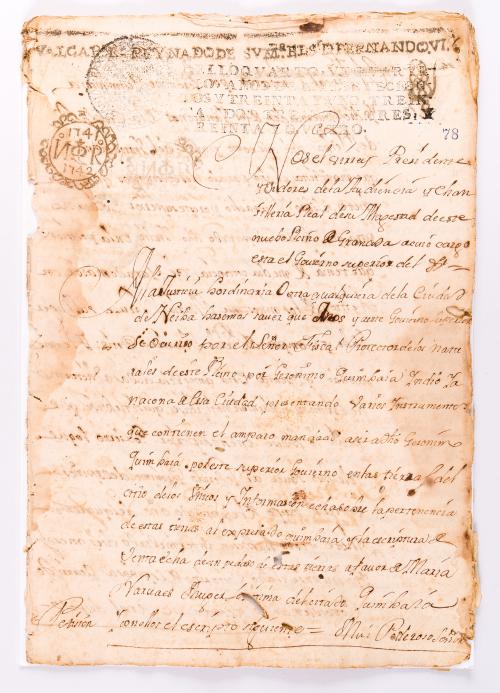 VALGA P. EL REYNADO DE SV M. EL S. D. FERNANDO VI.
SELLO QVARTO
TREINTA Y TRES, Y
TREINTA Y QVATRO.
1741
1742
78
Nos el virrey Press.dente
y oydores de la Audiencia y Chan
silleria Real de su Magestad de este
nuebo Reino de Granada a cuio cargo
esta el Govierno superior del &
A la Justicia hordinaria O otra qualquiera de la Ciudad
de Neiba hasemos saver que Anos y ante Govierno superior
se ocurrio por el Señor Fiscal Protector de los natu
rales de este Reino por Geronimo Quimbaia Indio Ya
nacona de esa Ciudad presentando varios Instrumentos
que contienen el amparo mandado aser a dho Geronimo
Quimbaia por este superior Govierno en las tierras del
citio de los y Informacion echa sobre la pertenencia
de estas tierras al expresado quimbaia y la escriptura de
Venta echa de un pedaso de estas tierras a favor de Maria
Narvaes Muger lexitima del citado Quimbaia
Petision con ellos el escripto siguiente = Mui Poderoso Señor